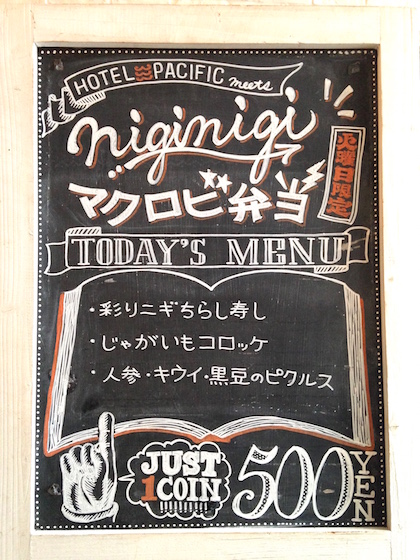 HOTEL PACIFIC meets
niginigi
マクロビ弁当
火曜日限定
TODAY'S MENU
・彩りニギちらし寿し
・じゃがいもコロッケ
・人参・キウイ・黒豆のピクルス
JUST
1COIN
500YEN